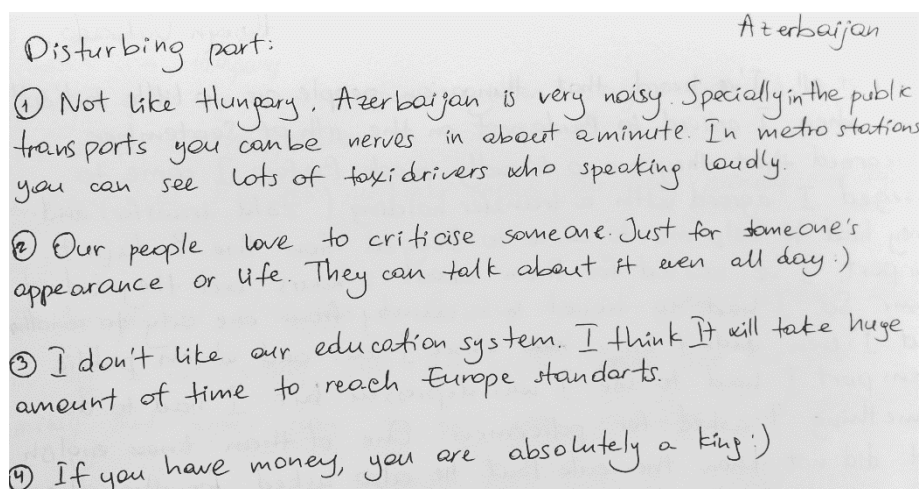 Azerbaijan
Disturbing part:
① Not like Hungary. Azerbaijan is very noisy. Specially in the public
transports you can be nerves in about a minute. In metro stations
you can see lots of taxi drivers who speaking loudly.
② Our people love to criticise someone. Just for someone's
appearance or life. They can talk about it even all day :)
③ I don't like our education system. I think It will take huge
amount of time to reach Europe standarts.
④ If you have money, you are absolutely a king :)